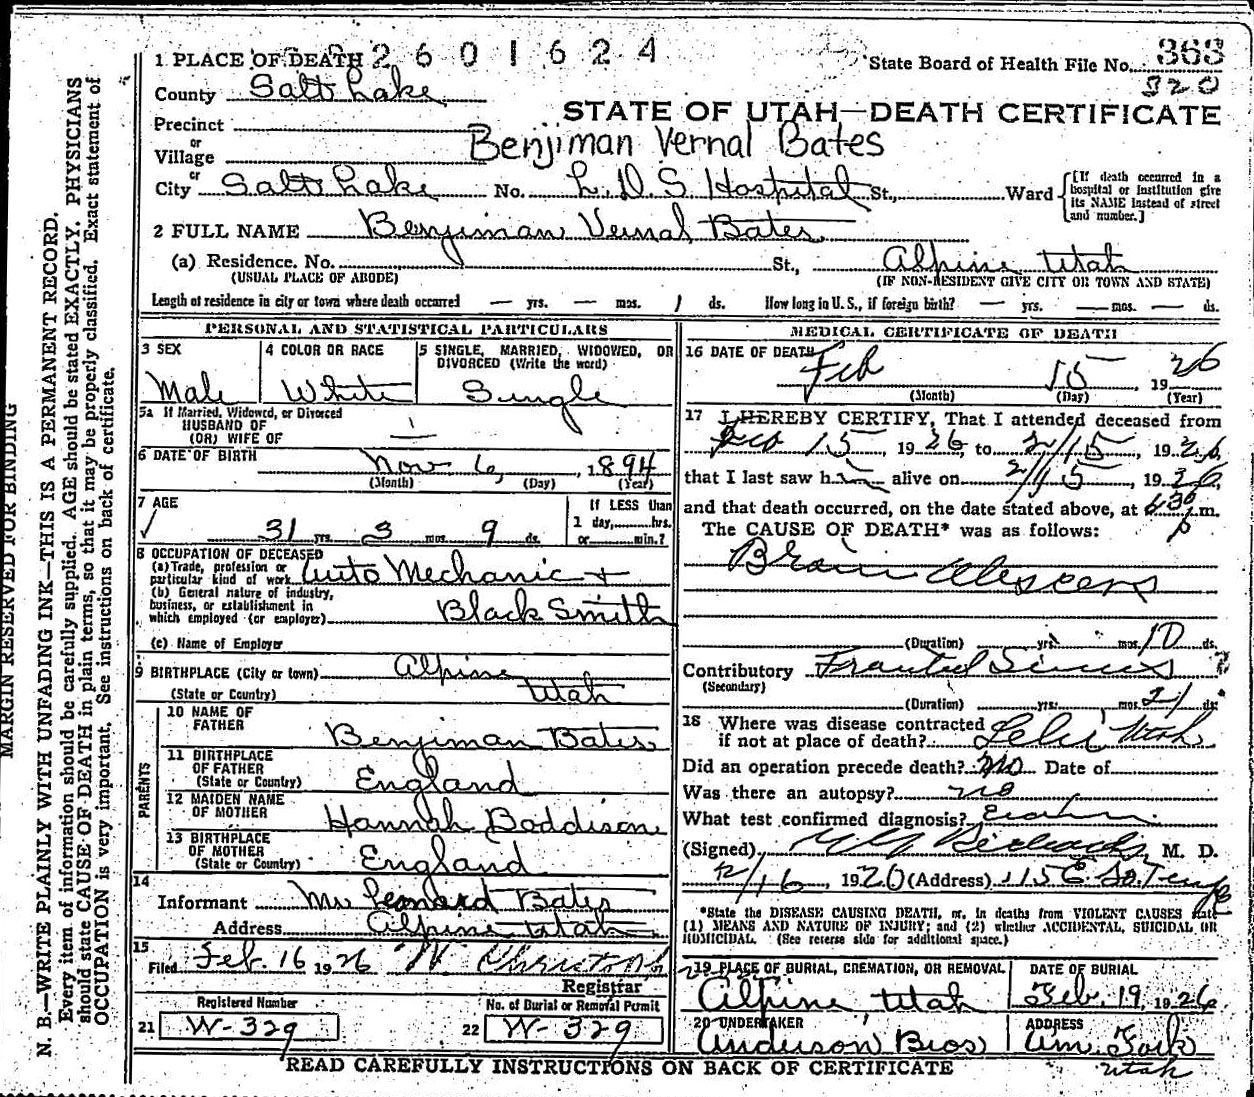 2601624
363
1 PLACE OF DEATH
State Board of Health File No.
320
County Salt Lake
STATE OF UTAH—DEATH CERTIFICATE
Precinct
or
Village
Benjiman Vernal Bates
or
City Salt Lake No. L. D. S. Hospital St., Ward
[If death occurred in a hospital or institution give its NAME instead of street and number.]
2 FULL NAME Benjiman Vernal Bates
(a) Residence. No. St., Alpine Utah
(USUAL PLACE OF ABODE) (IF NON-RESIDENT GIVE CITY OR TOWN AND STATE)
Length of residence in city or town where death occurred — yrs. — mos. 1 ds. How long in U. S., if foreign birth? — yrs. — mos. — ds.
PERSONAL AND STATISTICAL PARTICULARS
3 SEX
Male
4 COLOR OR RACE
White
5 SINGLE, MARRIED, WIDOWED, OR DIVORCED (Write the word)
Single
5a If Married, Widowed, or Divorced
HUSBAND OF
(OR) WIFE OF —
6 DATE OF BIRTH Nov 6, 1894
(Month) (Day) (Year)
7 AGE
31 yrs. 3 mos. 9 ds.
If LESS than
1 day, hrs.
or min.?
8 OCCUPATION OF DECEASED
(a) Trade, profession or
particular kind of work Auto Mechanic +
(b) General nature of industry,
business, or establishment in
which employed (or employer) Black Smith
(c) Name of Employer
9 BIRTHPLACE (City or town) Alpine
(State or Country) Utah
PARENTS
10 NAME OF
FATHER Benjiman Bates
11 BIRTHPLACE
OF FATHER
(State or Country) England
12 MAIDEN NAME
OF MOTHER Hannah Boddison
13 BIRTHPLACE
OF MOTHER
(State or Country) England
14
Informant Mr Leonard Bates
Address Alpine Utah
15
Filed Feb. 16 1926
Registrar
Registered Number
21 W-329
No. of Burial or Removal Permit
22 W-329
MEDICAL CERTIFICATE OF DEATH
16 DATE OF DEATH
Feb 15, 1926
(Month) (Day) (Year)
17 I HEREBY CERTIFY, That I attended deceased from
Feb 15, 1926, to 2/15, 1926,
that I last saw h alive on 2/15, 1926,
and that death occurred, on the date stated above, at 630 p m.
The CAUSE OF DEATH* was as follows:
Brain Abscess
(Duration) yrs. mos. 10 ds.
Contributory Frontal Sinus
(Secondary)
(Duration) yrs. mos. 21 ds.
18 Where was disease contracted
if not at place of death? Lehi Utah
Did an operation precede death? No Date of
Was there an autopsy? no
What test confirmed diagnosis?
(Signed) M. D.
2/16, 1920 (Address) 115 E. So. Temple
*State the DISEASE CAUSING DEATH, or, in deaths from VIOLENT CAUSES state
(1) MEANS AND NATURE OF INJURY; and (2) whether ACCIDENTAL, SUICIDAL OR
HOMICIDAL. (See reverse side for additional space.)
19 PLACE OF BURIAL, CREMATION, OR REMOVAL
Alpine, Utah
DATE OF BURIAL
Feb. 19, 1926
20 UNDERTAKER
Anderson Bros
ADDRESS
Am. Fork
Utah
READ CAREFULLY INSTRUCTIONS ON BACK OF CERTIFICATE
MARGIN RESERVED FOR BINDING
N. B.—WRITE PLAINLY WITH UNFADING INK—THIS IS A PERMANENT RECORD.
Every item of information should be carefully supplied. AGE should be stated EXACTLY. PHYSICIANS
should state CAUSE OF DEATH in plain terms, so that it may be properly classified. Exact statement of
OCCUPATION is very important. See instructions on back of certificate.